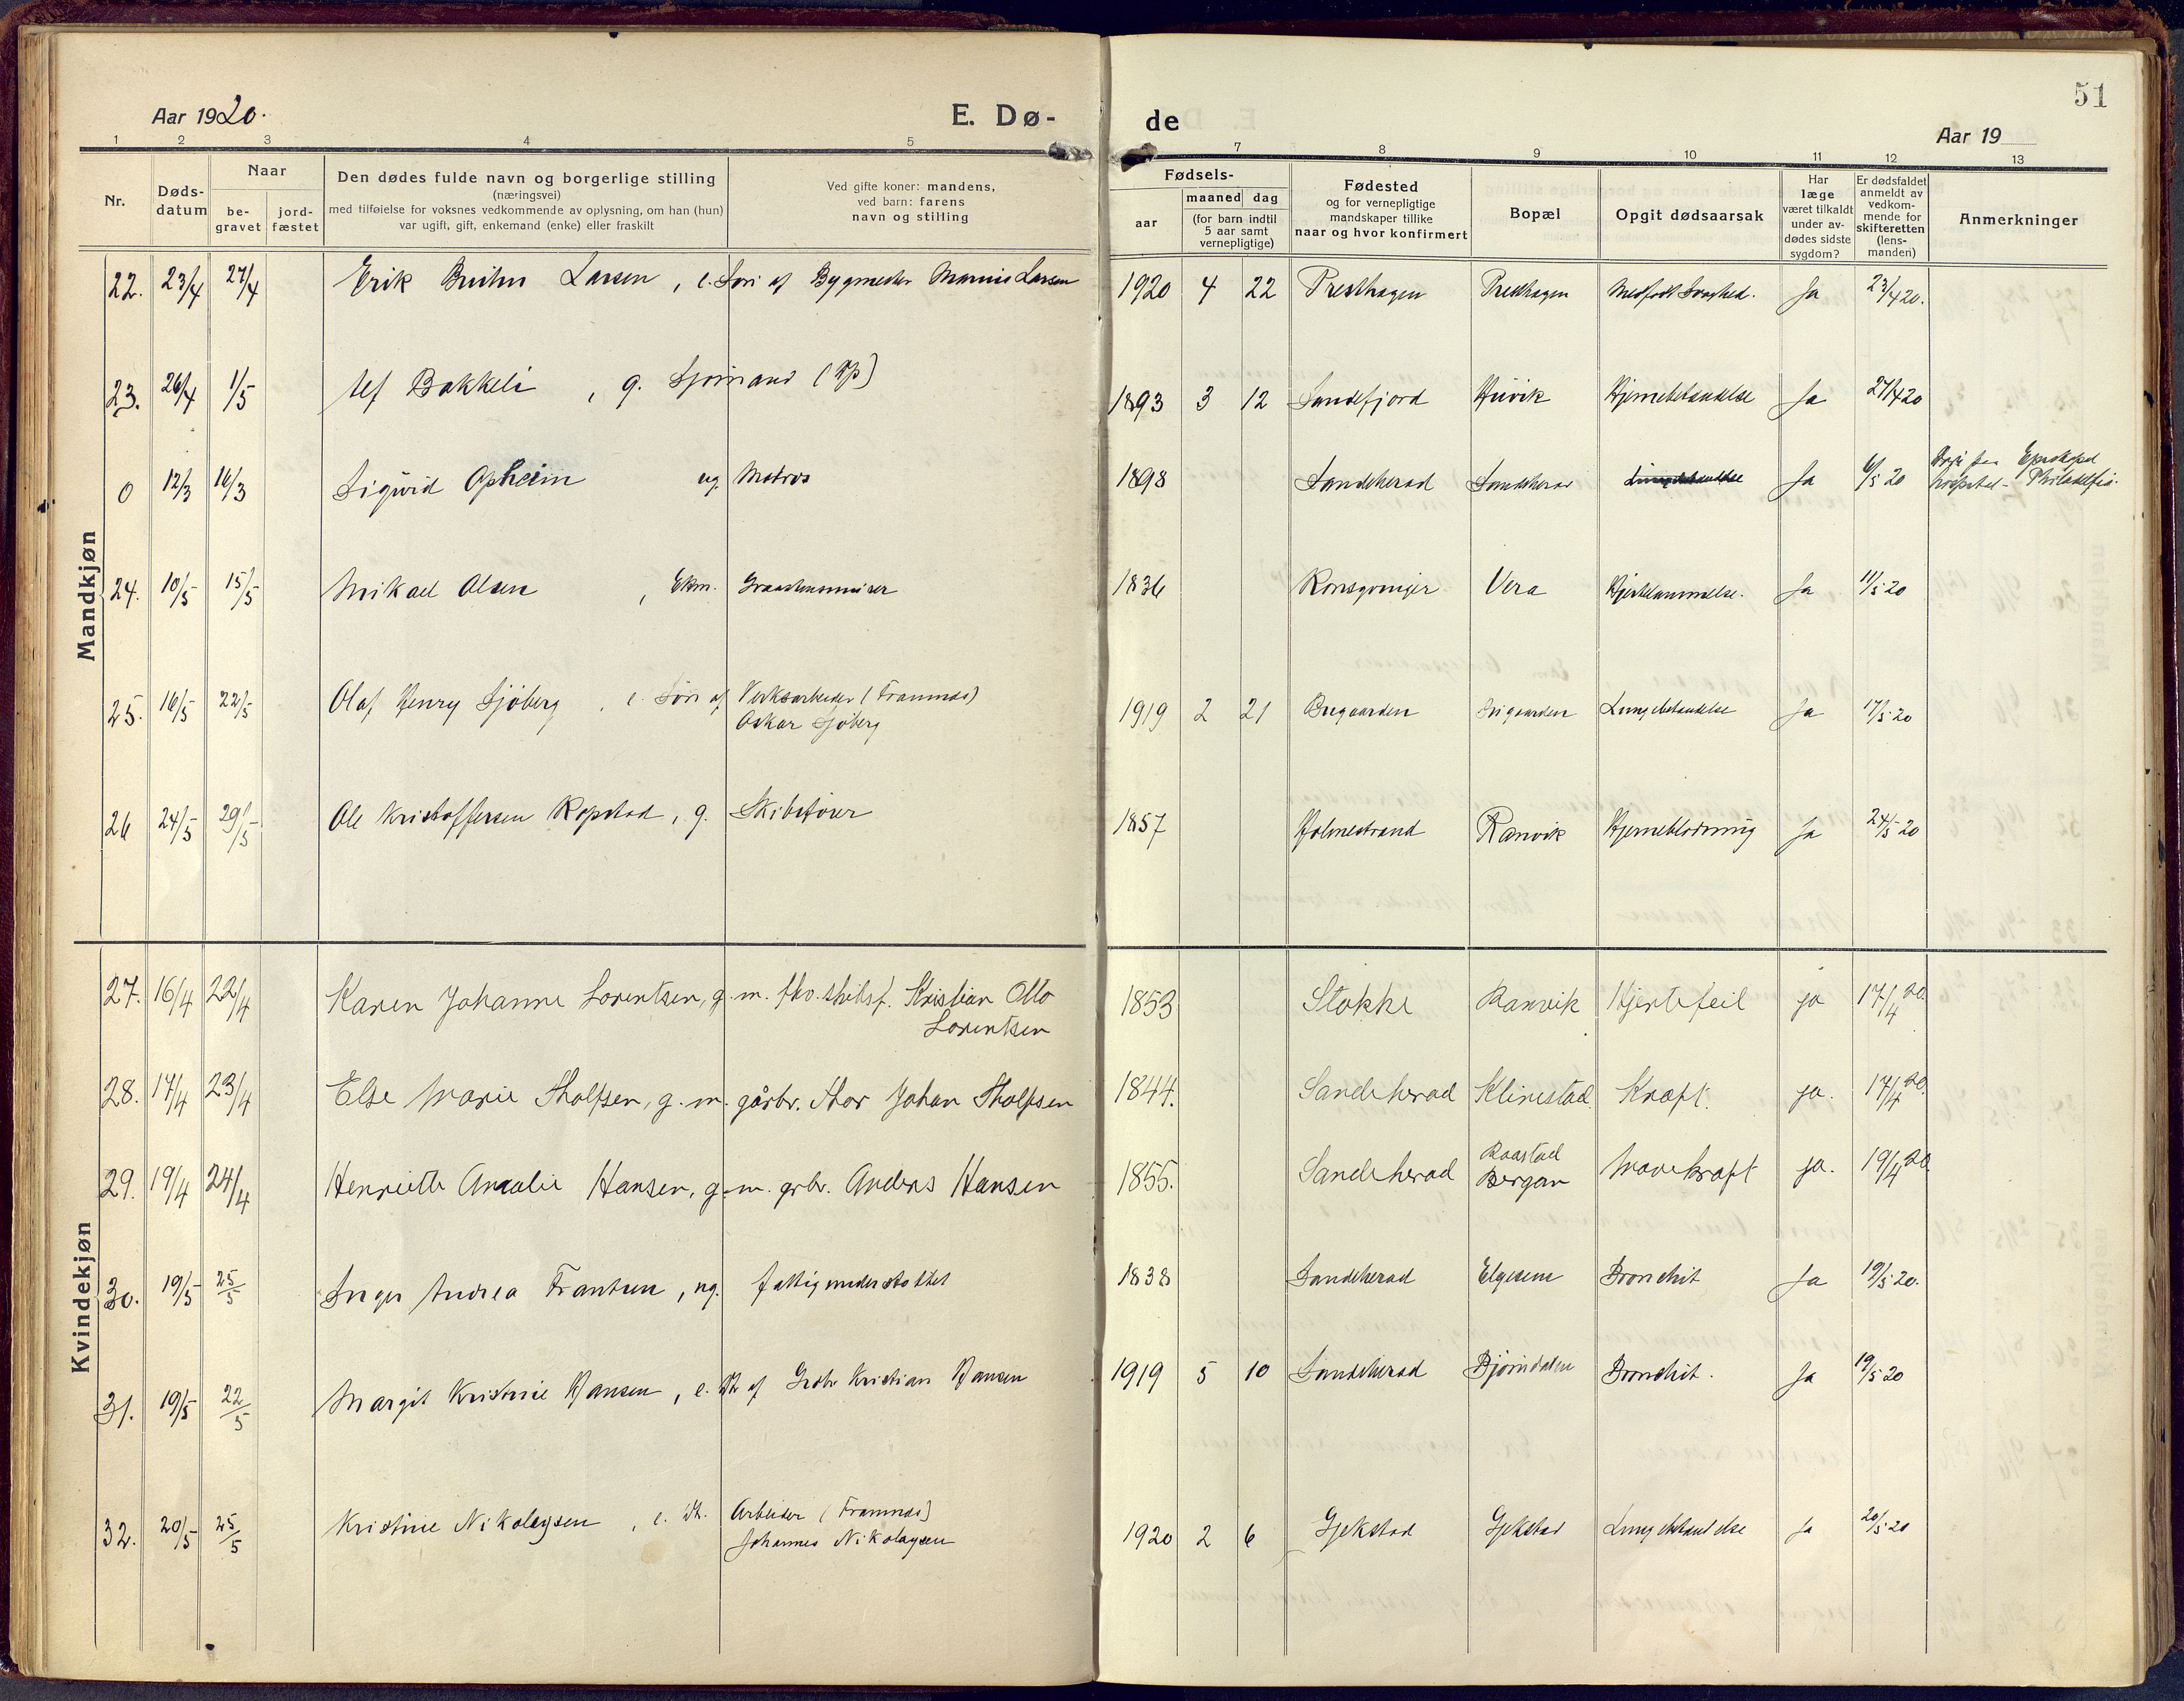 51
Aar 1920. E. Dø- de Aar 19
1 2 3 4 5 7 8 9 10 11 12 13
Nr.
Døds-
datum
Naar
be-
gravet
jord-
fæstet
Den dødes fulde navn og borgerlige stilling
(næringsvei)
med tilføielse for voksnes vedkommende av oplysning, om han (hun)
var ugift, gift, enkemand (enke) eller fraskilt
Ved gifte koner: mandens,
ved barn: farens
navn og stilling
Fødsels-
aar
maaned dag
(for barn indtil
5 aar samt
vernepligtige)
Fødested
og for vernepligtige
mandskaper tillike
naar og hvor konfirmert
Bopæl
Opgit dødsaarsak
Har
læge
været tilkaldt
under av-
dødes sidste
sygdom?
Er dødsfaldet
anmeldt av
vedkom-
mende for
skifteretten
(lens-
manden)
Anmerkninger
Mandkjøn
22. 23/4 27/4 Erik Bruhn Larsen, e. Søn af Bygmester Larsen 1920 4 22 Presthagen Presthagen Medfødt Svaghed. Ja 23/4 20.
23. 26/4 1/5 Alf Bakkeli, g. Sjømand 1893 3 12 Sandefjord Huvik Hjernebetændelse Ja 27/4 20
0 12/3 16/3 Sigurd Opheim ug. Matros 1898 Sandeherad Sandeherad Lungebetændelse Ja 6/5 20 Episkopal
hospital - Philadelfia.
24. 10/5 15/5 Mikael Olsen, Ekm. Graastensmurer 1836 Kongsvinger Vera Hjertelammelse. Ja 11/5 20
25. 16/5 22/5 Olaf Henry Sjöberg, e. Søn af Verksarbeider (Framnæs)
Oskar Sjöberg 1919 2 21 Bugaarden Bugaarden Lungebetændelse Ja 17/5 20
26 24/5 29/5 Ole Kristoffersen Kopstad, g. Skibsfører 1857 Holmestrand Ranvik Hjerneblødning Ja 24/5 20
Kvindekjøn
27. 16/4 22/4 Karen Johanne Lorentsen, g. m. fhv. skibsf. Kristian Otto
Lorentsen 1853 Stokke Ranvik Hjertefeil ja 17/4 20.
28. 17/4 23/4 Else Marie Tholfsen, g. m. gårbr. Thor Johan Tholfsen 1844. Sandeherad Klinestad. Kræft. ja. 17/4 20.
29. 19/4 24/4 Henriette Amalie Hansen, g. m. grbr. Anders Hansen 1855. Sandeherad Raastad
Bergan Mavekræft ja. 19/4 20
30. 19/5 25/5 Inger Andrea Frantsen, ug. fattigunderstøttet 1838 Sandeherad Elgesem Bronchit Ja 19/5 20.
31. 19/5 22/5 Margit Kristine Hansen, e. Dt. af Grdbr Kristian Hansen 1919 5 10 Sandeherad Bjørndalen Bronchit. Ja 19/5 20
32. 20/5 25/5 Kristine Nikolaysen, e. Dt. Arbeider (Framnæs)
Johannes Nikolaysen 1920 2 6 Gjekstad Gjekstad Lungebetændelse Ja 20/5 20